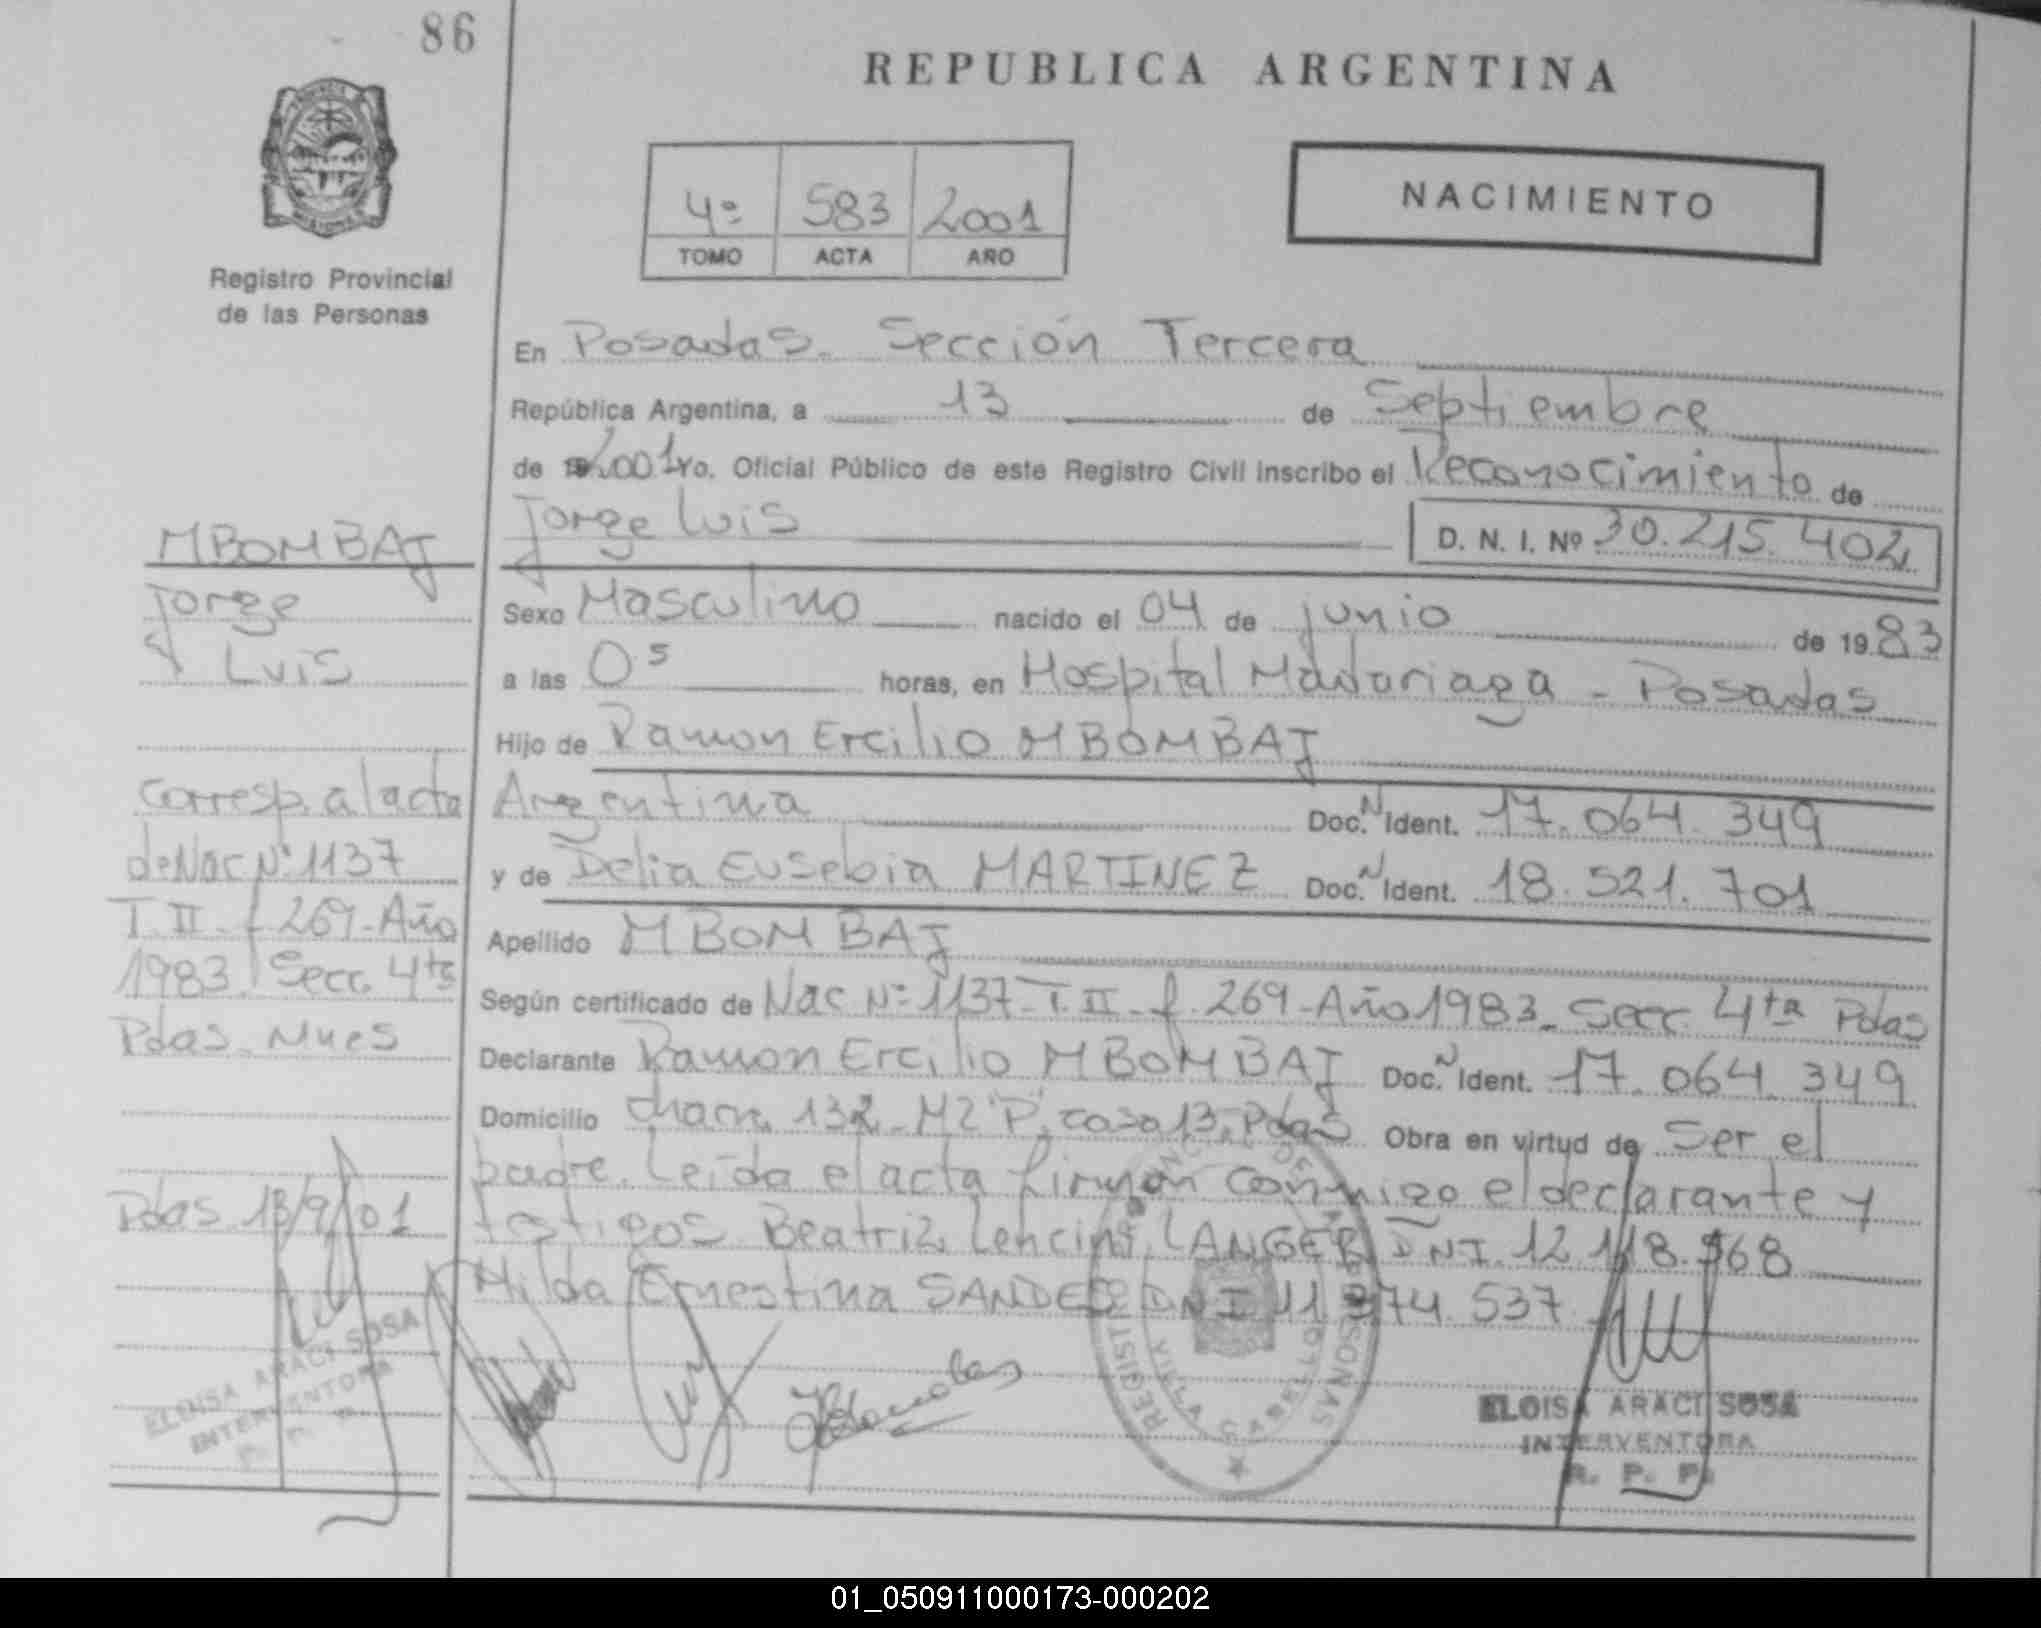 86
REPUBLICA ARGENTINA
Registro Provincial
de las Personas
4º 583 2001
TOMO ACTA AÑO
NACIMIENTO
En Posadas. Sección Tercera
República Argentina, a 13 de Septiembre
de 2001 Yo. Oficial Público de este Registro Civil inscribo el Reconocimiento de
Jorge Luis D. N. I. Nº 30.215.402
Sexo Masculino nacido el 04 de junio de 1983
a las 0⁵ horas, en Hospital Madariaga - Posadas
Hijo de Ramon Ercilio MBOMBAJ
Argentina Doc. N Ident. 17.064.349
y de Delia Eusebia MARTINEZ Doc. N Ident. 18.521.701
Apellido MBOMBAJ
Según certificado de Nac Nº 1137-T.II-f.269-Año 1983. Secc. 4ta Pdas
Declarante Ramon Ercilio MBOMBAJ Doc. N Ident. 17.064.349
Domicilio chacra 132-MZ"P", casa 13, Pdas Obra en virtud de ser el
padre. Leída el acta firman conmigo el declarante y
testigos Beatriz LANGER DNI. 12.118.968
Hilda Ernestina DNI 11.374.537
MBOMBAJ
Jorge
Luis
Corresp. al acta
de Nac Nº 1137
T.II-f 269-Año
1983 Secc. 4ta
Pdas. Mnes
Pdas 13/9/01
ELOISA ARACI SOSA
INTERVENTORA
ELOISA ARACI SOSA
INTERVENTORA
R. P. P.
01_050911000173-000202